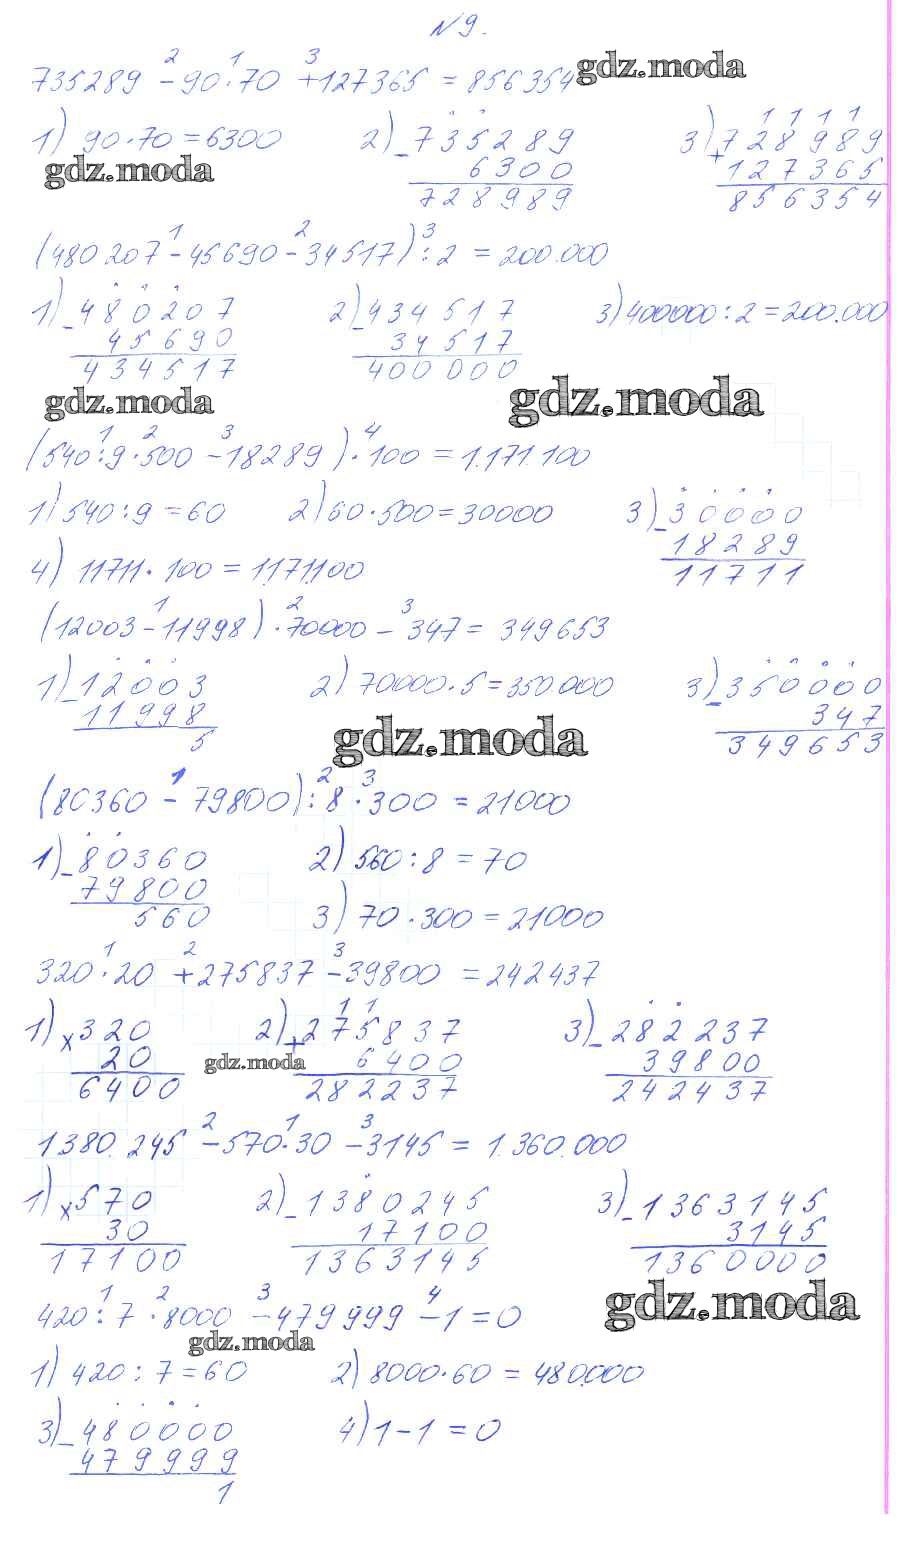 №9.
735289 - 90·70 + 127365 = 856354
2 1 3
gdz.moda
1) 90·70=6300 2) - 735289 3) + 728989
6300 127365
728989 856354
gdz.moda
(480207 - 45690 - 34517) : 2 = 200.000
1 2 3
1) - 480207 2) - 434517 3) 400000 : 2 = 200.000
45690 34517
434517 400000
gdz.moda gdz.moda
(540 : 9 · 500 - 18289) · 100 = 1.171.100
1 2 3 4
1) 540 : 9 = 60 2) 60·500=30000 3) - 30000
18289
11711
4) 11711·100 = 1171100
(12003 - 11998) · 70000 - 347 = 349653
1 2 3
1) - 12003 2) 70000·5=350.000 3) - 350000
11998 347
5 349653
gdz.moda
(80360 - 79800) : 8 · 300 = 21000
1 2 3
1) - 80360 2) 560 : 8 = 70
79800
560 3) 70·300 = 21000
320·20 + 275837 - 39800 = 242437
1 2 3
1) x 320 2) + 275837 3) - 282237
20 6400 39800
6400 282237 242437
gdz.moda
1380.245 - 570·30 - 3145 = 1.360.000
2 1 3
1) x 570 2) - 1380245 3) - 1363145
30 17100 3145
17100 1363145 1360000
420 : 7 · 8000 - 479999 - 1 = 0
1 2 3 4
gdz.moda
gdz.moda
1) 420 : 7 = 60 2) 8000·60 = 480.000
3) - 480000 4) 1-1=0
479999
1